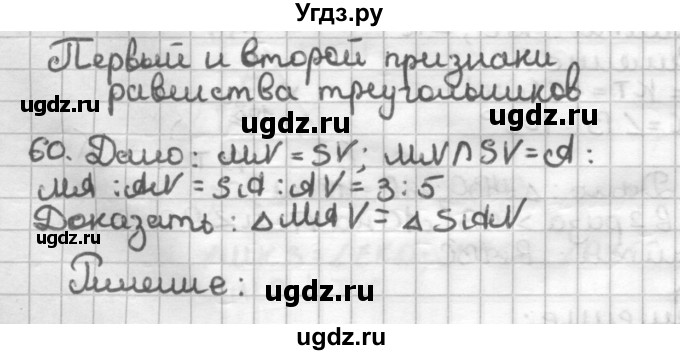 Угдз.ру
Первый и второй признаки
равенства треугольников
ugdz.ru
ugdz.ru
ugdz.ru
60. Дано: MN = SV; MN ∩ SV = A:
MA : AN = SA : AV = 3 : 5
ugdz.ru
ugdz.ru
Доказать: △MAV = △SAN
ugdz.ru
Решение:
ugdz.ru
ugdz.ru
ugdz.ru